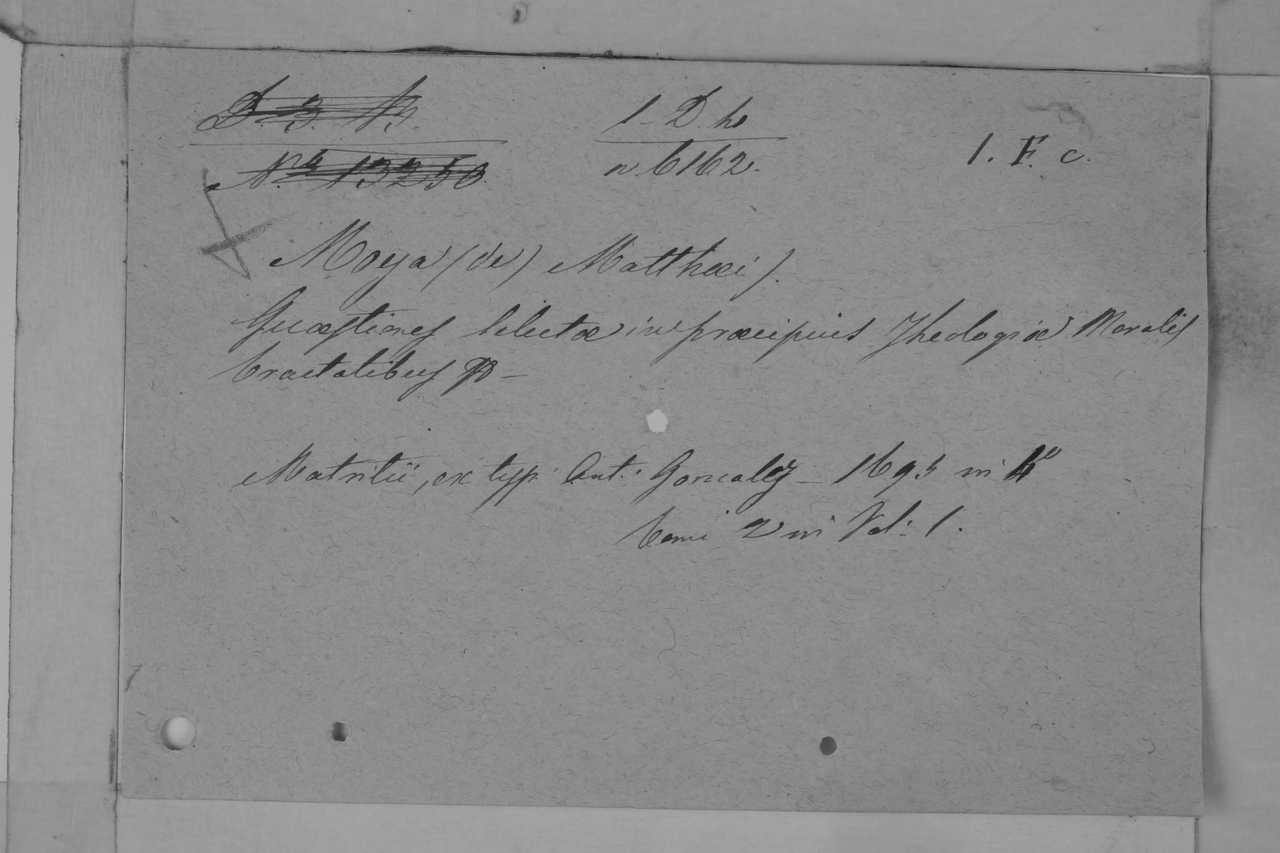 1. D. h
n 6162.
1. F. c.
Moya (de) Matthæi).
Quæstiones selectæ in præcipuis Theologiæ Moralis
tractatibus
Matritii, ex typ: Ant: Gonzalez – 1695 in 4°
tomi 2 in Vol: 1.